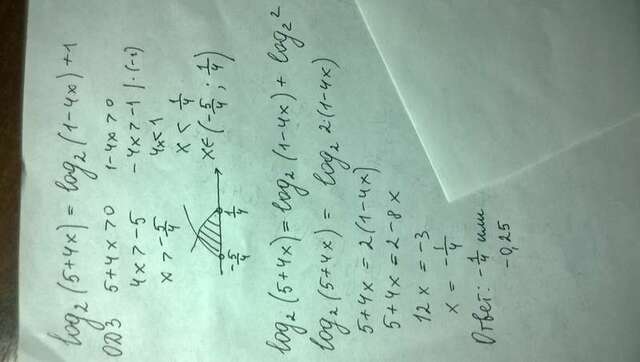 log₂(5+4x) = log₂(1-4x)+1
ОДЗ 5+4x>0 1-4x>0
4x>-5 -4x>-1 |·(-1)
x>-5/4 4x<1
x<1/4
-5/4 1/4 x∈(-5/4; 1/4)
log₂(5+4x)=log₂(1-4x)+log₂2
log₂(5+4x) = log₂2·(1-4x)
5+4x=2(1-4x)
5+4x=2-8x
12x=-3
x = -1/4
Ответ: -1/4 или
-0,25